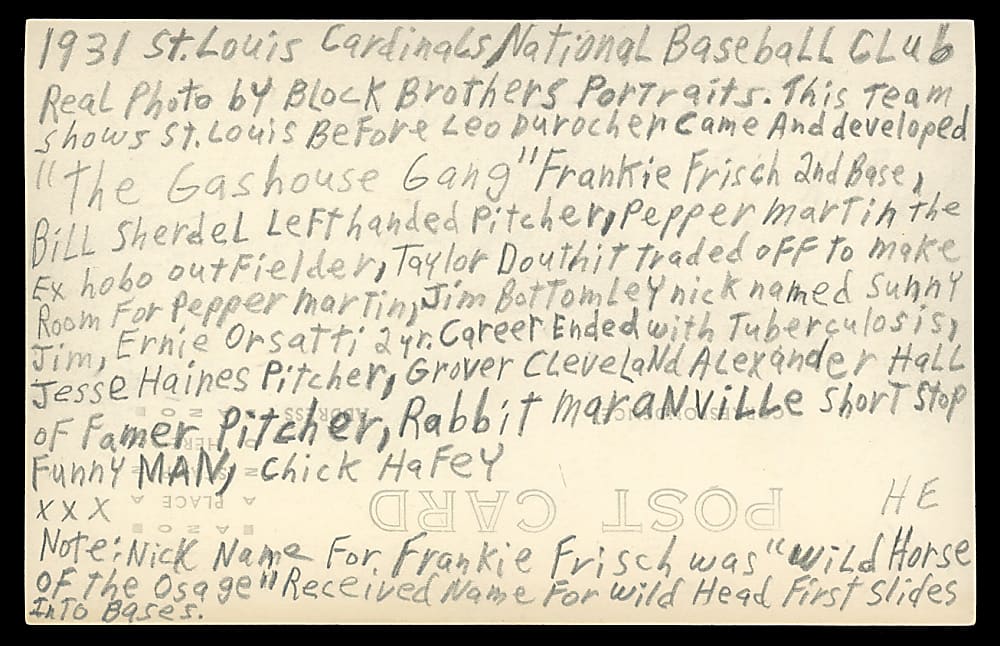 1931 St. Louis Cardinals, National Baseball Club
Real Photo by Block Brothers Portraits. This Team
shows St. Louis Before Leo Durocher Came And developed
"The Gashouse Gang" Frankie Frisch 2nd Base,
Bill Sherdel Left handed Pitcher, Pepper Martin the
Ex hobo outfielder, Taylor Douthit traded off to make
Room For Pepper Martin, Jim Bottomley nick named Sunny
Jim, Ernie Orsatti 2 yr. Career Ended with Tuberculosis,
Jesse Haines Pitcher, Grover Cleveland Alexander Hall
of Famer Pitcher, Rabbit Maranville Short Stop
Funny MAN, Chick Hafey
XXX
HE
POST CARD
CORRESPONDENCE
ADDRESS
PLACE
HERE
Note: Nick Name For Frankie Frisch was "Wild Horse
of the Osage" Received Name For wild Head First Slides
Into Bases.